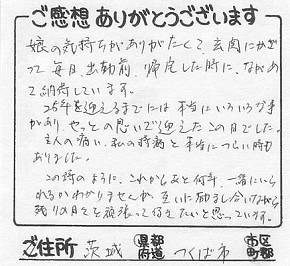 ご感想ありがとうございます
娘の気持ちがありがたくて、玄関にかざ
って毎日、出勤前、帰宅した時に、ながめ
て納得しています。
25年を迎えるまでには本当にいろいろな事
があり、やっとの思いで迎えたこの日でした。
主人の病い、私の持病と本当につらい時も
ありました。
この詩のように、これからあと何年、一緒にいら
れるかわかりませんが、互いに励まし合いながら
残りの日々を頑張って行きたいと思っています。
ご住所 茨城 都道府県 つくば市 市区町郡